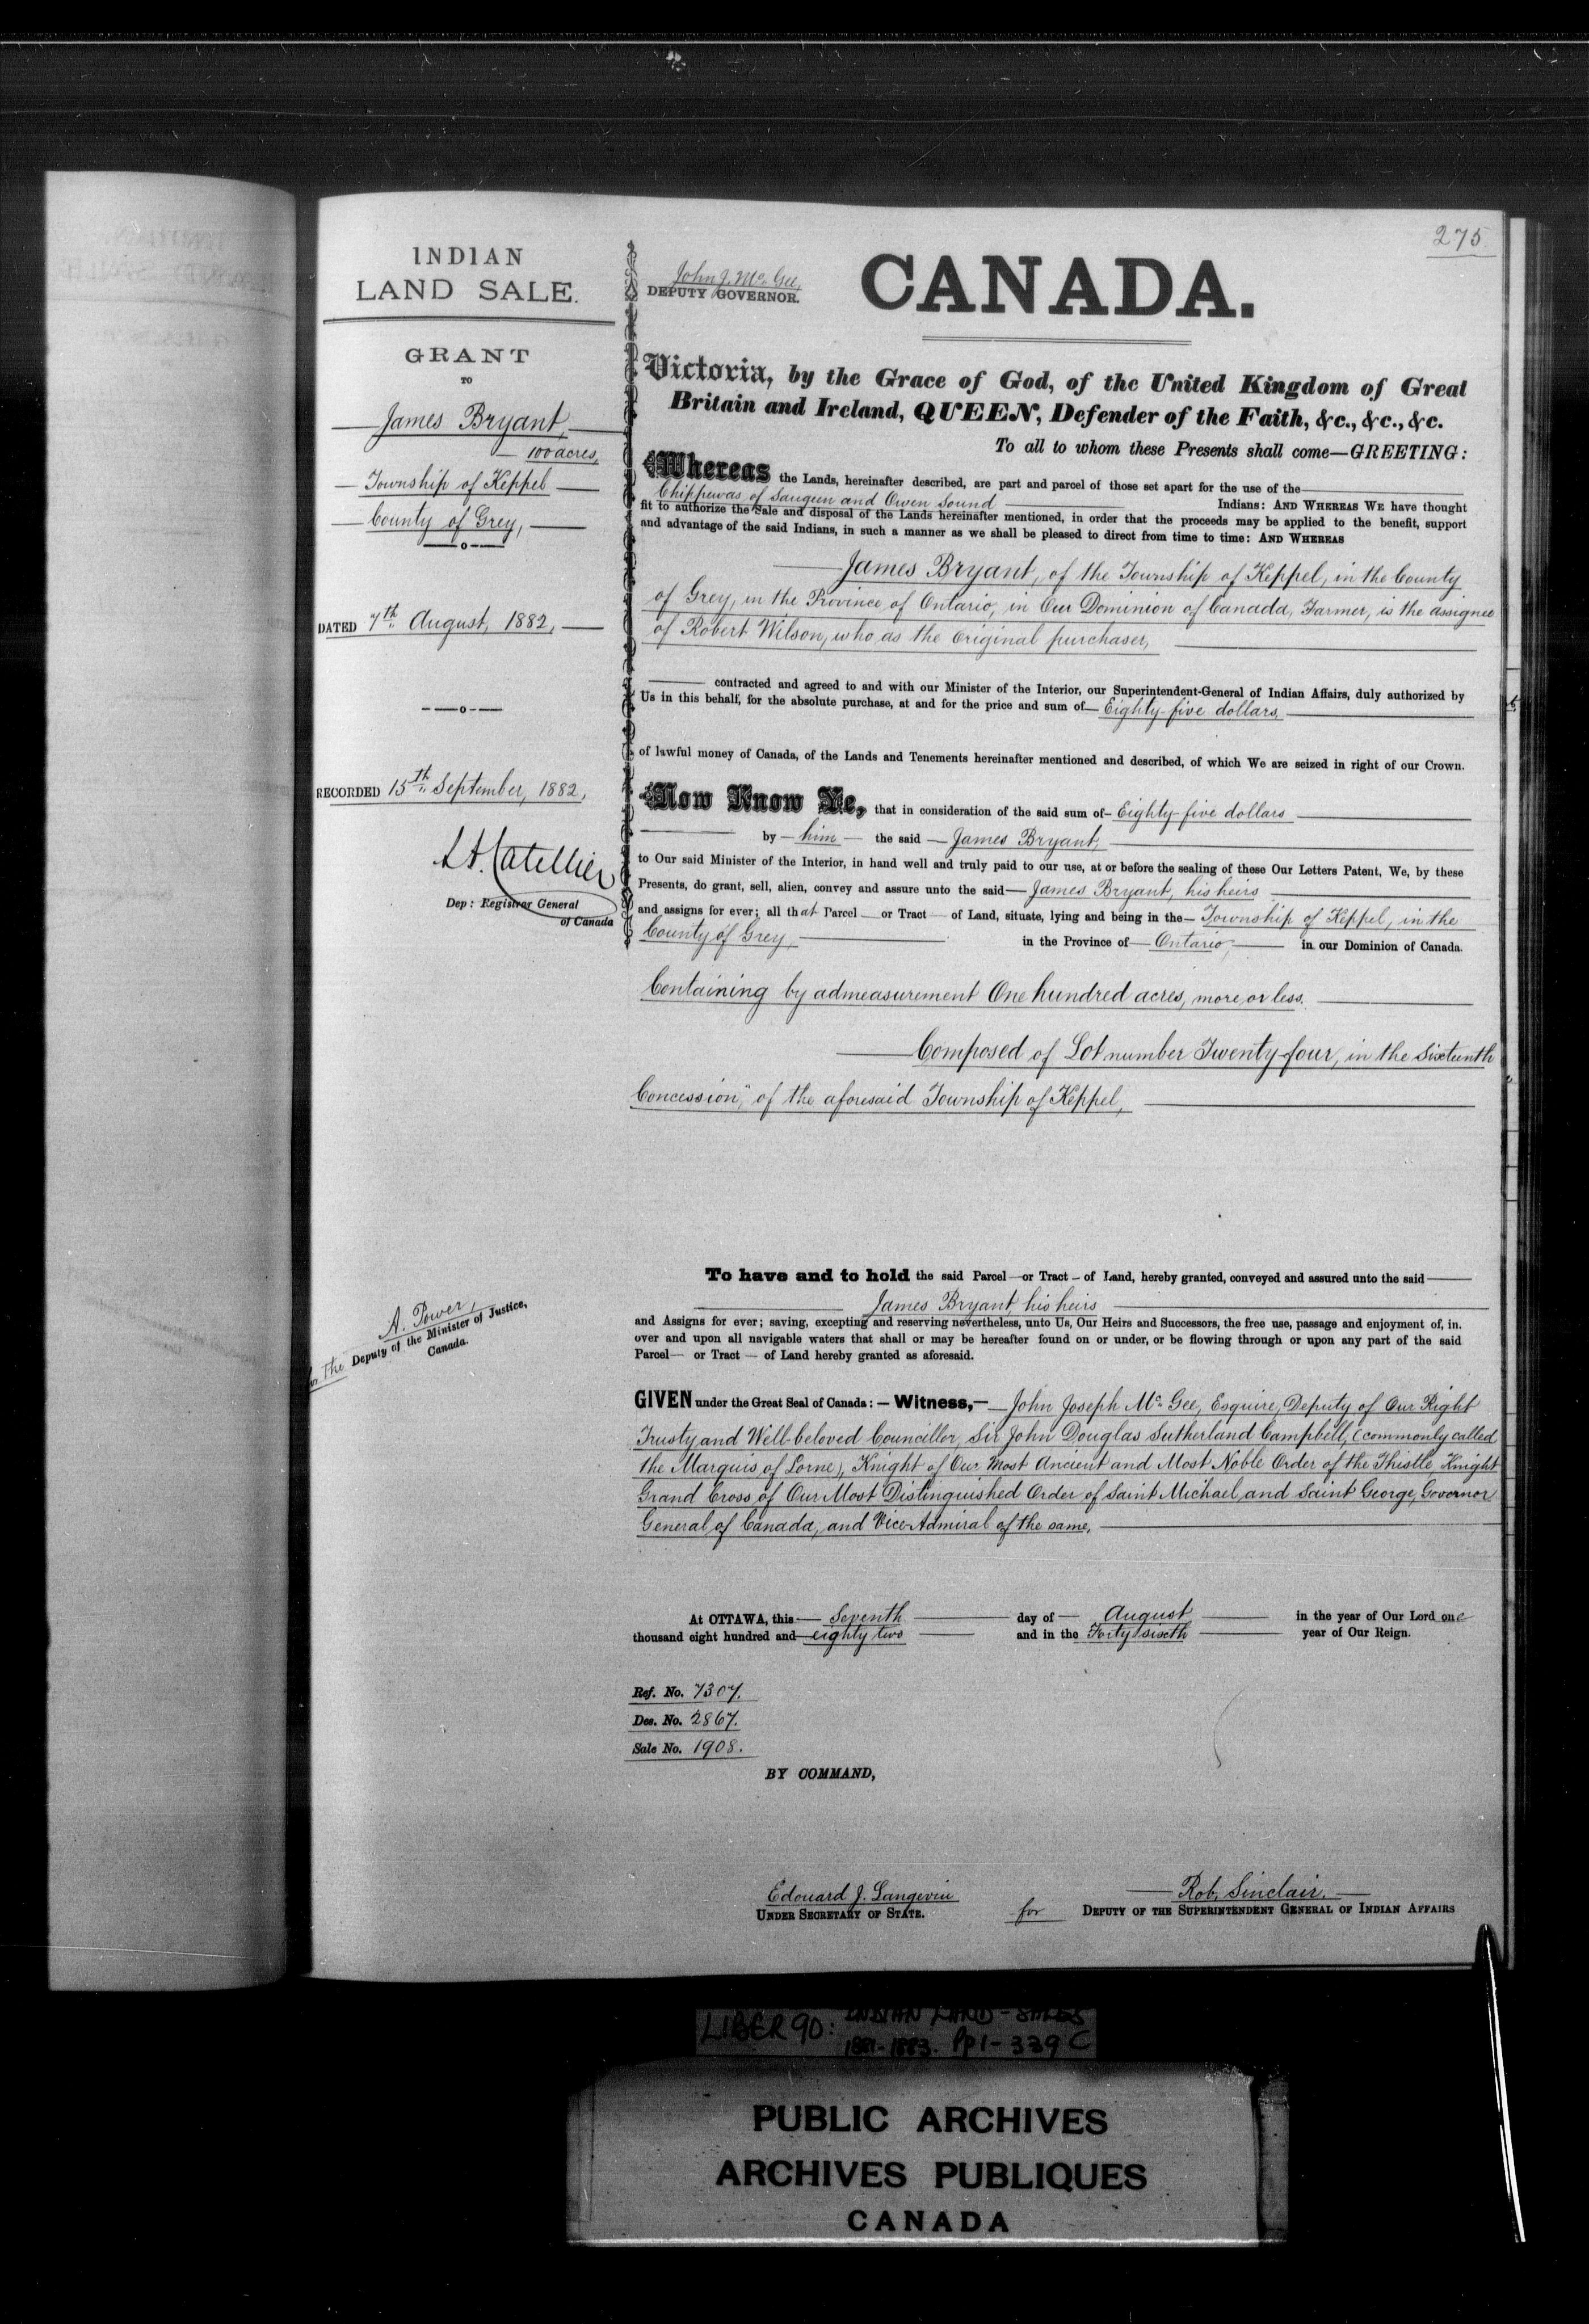 275
INDIAN
LAND SALE.
GRANT
TO
James Bryant,
100 acres,
Township of Keppel
County of Grey,
DATED 7th August, 1882,
RECORDED 15th September, 1882,
L.A. Catellier
Dep: Registrar General
of Canada
A. Power,
for The Deputy of the Minister of Justice,
Canada.
John J. McGee,
DEPUTY GOVERNOR.
CANADA.
Victoria, by the Grace of God, of the United Kingdom of Great
Britain and Ireland, QUEEN, Defender of the Faith, &c., &c., &c.
To all to whom these Presents shall come—GREETING:
Whereas the Lands, hereinafter described, are part and parcel of those set apart for the use of the
Chippewas of Saugeen and Owen Sound Indians: AND WHEREAS WE have thought
fit to authorize the Sale and disposal of the Lands hereinafter mentioned, in order that the proceeds may be applied to the benefit, support
and advantage of the said Indians, in such a manner as we shall be pleased to direct from time to time: AND WHEREAS
James Bryant, of the Township of Keppel, in the County
of Grey, in the Province of Ontario, in Our Dominion of Canada, Farmer, is the assignee
of Robert Wilson, who as the original purchaser,
contracted and agreed to and with our Minister of the Interior, our Superintendent-General of Indian Affairs, duly authorized by
Us in this behalf, for the absolute purchase, at and for the price and sum of— Eighty-five dollars,
of lawful money of Canada, of the Lands and Tenements hereinafter mentioned and described, of which We are seized in right of our Crown.
Now Know Ye, that in consideration of the said sum of— Eighty-five dollars
by — him — the said — James Bryant,
to Our said Minister of the Interior, in hand well and truly paid to our use, at or before the sealing of these Our Letters Patent, We, by these
Presents, do grant, sell, alien, convey and assure unto the said— James Bryant, his heirs
and assigns for ever; all that Parcel — or Tract — of Land, situate, lying and being in the— Township of Keppel, in the
County of Grey, in the Province of— Ontario, in our Dominion of Canada.
Containing by admeasurement One hundred acres, more or less.
Composed of Lot number Twenty-four, in the Sixteenth
Concession, of the aforesaid Township of Keppel,
To have and to hold the said Parcel —or Tract — of Land, hereby granted, conveyed and assured unto the said
James Bryant, his heirs
and Assigns for ever; saving, excepting and reserving nevertheless, unto Us, Our Heirs and Successors, the free use, passage and enjoyment of, in.
over and upon all navigable waters that shall or may be hereafter found on or under, or be flowing through or upon any part of the said
Parcel— or Tract — of Land hereby granted as aforesaid.
GIVEN under the Great Seal of Canada: — Witness,— John Joseph McGee, Esquire, Deputy of Our Right
Trusty and Well-beloved Councillor, Sir John Douglas Sutherland Campbell, (commonly called
the Marquis of Lorne), Knight of Our Most Ancient and Most Noble Order of the Thistle Knight
Grand Cross of Our Most Distinguished Order of Saint Michael and Saint George, Governor
General of Canada, and Vice-Admiral of the same,
At OTTAWA, this — Seventh day of — August in the year of Our Lord one
thousand eight hundred and eighty two and in the Forty sixth year of Our Reign.
Ref. No. 7307.
Des. No. 2867.
Sale No. 1908.
BY COMMAND,
Edouard J. Langevin
UNDER SECRETARY OF STATE.
Rob. Sinclair.
for DEPUTY OF THE SUPERINTENDENT GENERAL OF INDIAN AFFAIRS
LIBER 90: INDIAN LAND - SALES
1881-1883. Pp 1-339 C
PUBLIC ARCHIVES
ARCHIVES PUBLIQUES
CANADA